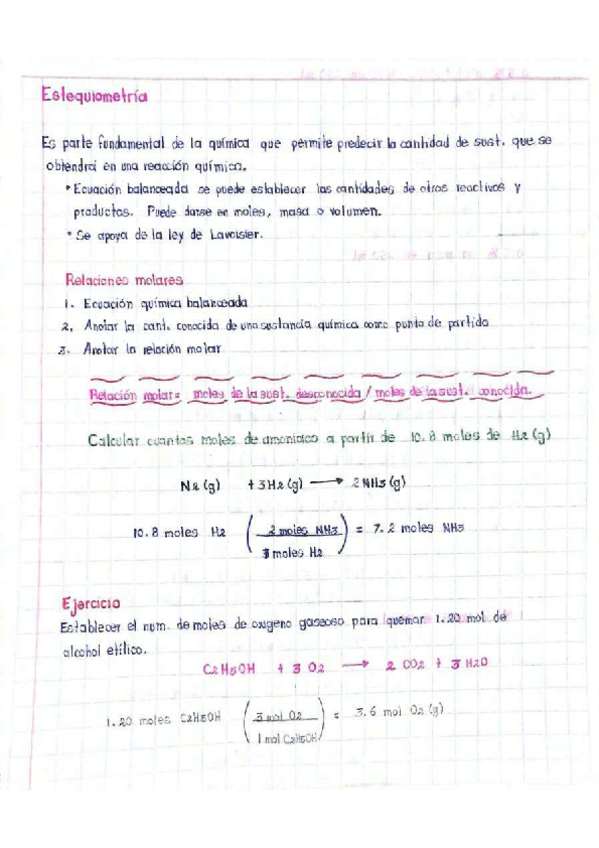 Estequiometría
Es parte fundamental de la química que permite predecir la cantidad de sust. que se
obtendrá en una reacción química.
* Ecuación balanceada se puede establecer las cantidades de otros reactivos y
productos. Puede darse en moles, masa o volumen.
* Se apoya de la ley de Lavoisier.
Relaciones molares
1. Ecuación química balanceada
2. Anotar la cant. conocida de una sustancia química como punto de partida
3. Anotar la relación molar
Relación molar= moles de la sust. desconocida / moles de la sust. conocida.
Calcular cuantas moles de amoniaco a partir de 10.8 moles de H2 (g)
N2 (g) + 3H2 (g) → 2 NH3 (g)
10.8 moles H2 ( 2 moles NH3 / 3 moles H2 ) = 7.2 moles NH3
Ejercicio
Establecer el num. de moles de oxigeno gaseoso para quemar 1.20 mol de
alcohol etílico.
C2H5OH + 3 O2 → 2 CO2 + 3 H2O
1.20 moles C2H5OH ( 3 mol O2 / 1 mol C2H5OH ) = 3.6 mol O2 (g)